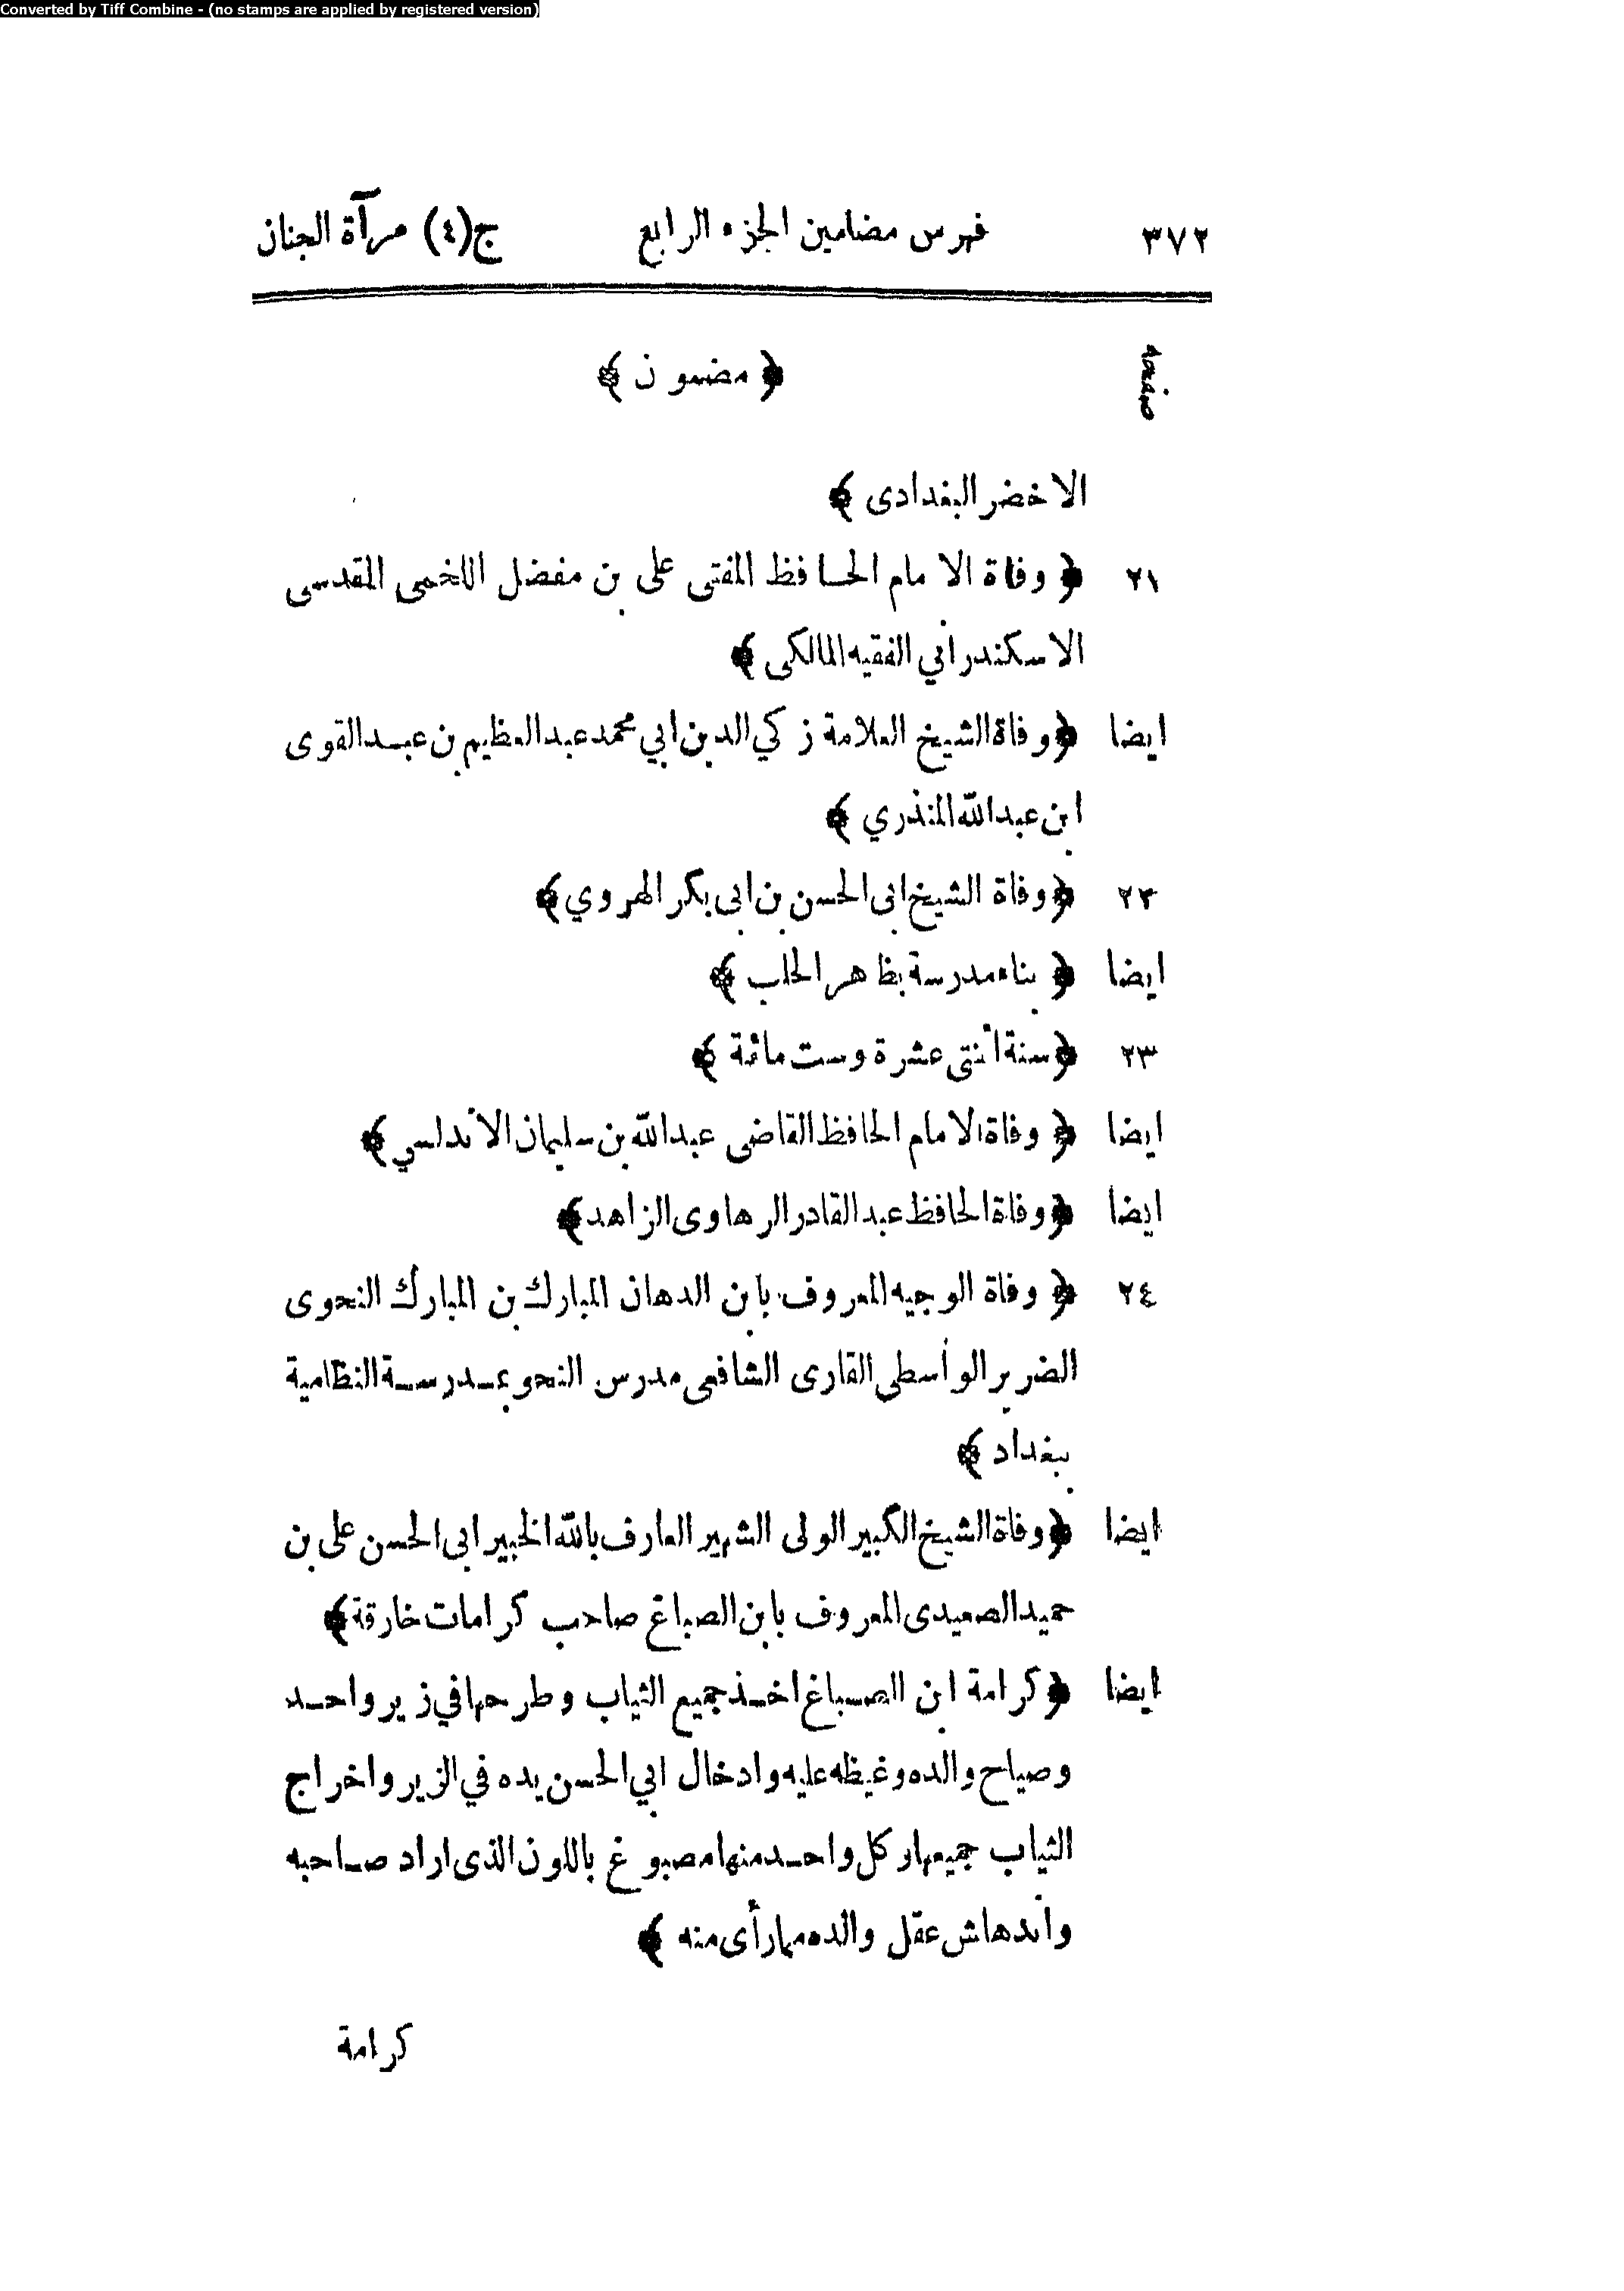 Converted by Tiff Combine - (no stamps are applied by registered version)
٣٧٢ فهرس مضامين الجزء الرابع ج(٤) مرآة الجنان
صفحه ﴿ مضمون ﴾
الاخضر البغدادى ﴾
٢١ ﴿ وفاة الامام الحافظ المفتى على بن مفضل اللخمى المقدسى
الاسكندرانى الفقيه المالكى ﴾
ايضا ﴿ وفاة الشيخ العلامة زكي الدين ابي محمد عبد العظيم بن عبد القوى
ابن عبد الله المنذري ﴾
٢٢ ﴿ وفاة الشيخ ابى الحسن بن ابى بكر الهروي ﴾
ايضا ﴿ بناء مدرسة بظاهر الحلب ﴾
٢٣ ﴿ سنة اثنتى عشرة وست مائة ﴾
ايضا ﴿ وفاة الامام الحافظ القاضى عبد الله بن سليمان الاندلسي ﴾
ايضا ﴿ وفاة الحافظ عبد القادر الرهاوى الزاهد ﴾
٢٤ ﴿ وفاة الوجيه المعروف بابن الدهان المبارك بن المبارك النحوى
الضرير الواسطى القارى الشافعى مدرس النحو بمدرسة النظامية
ببغداد ﴾
ايضا ﴿ وفاة الشيخ الكبير الولى الشهير العارف بالله الخبير ابى الحسن على بن
حميد الصعيدى المعروف بابن الصباغ صاحب كرامات خارقة ﴾
ايضا ﴿ كرامة ابن الصباغ اخذ جميع الثياب وطرحها في زير واحد
وصياح والده وغيظه عليه وادخال ابي الحسن يده في الزير واخراج
الثياب جميعها وكل واحد منها مصبوغ باللون الذى اراد صاحبه
واندهاش عقل والده مما رأى منه ﴾
كرامة